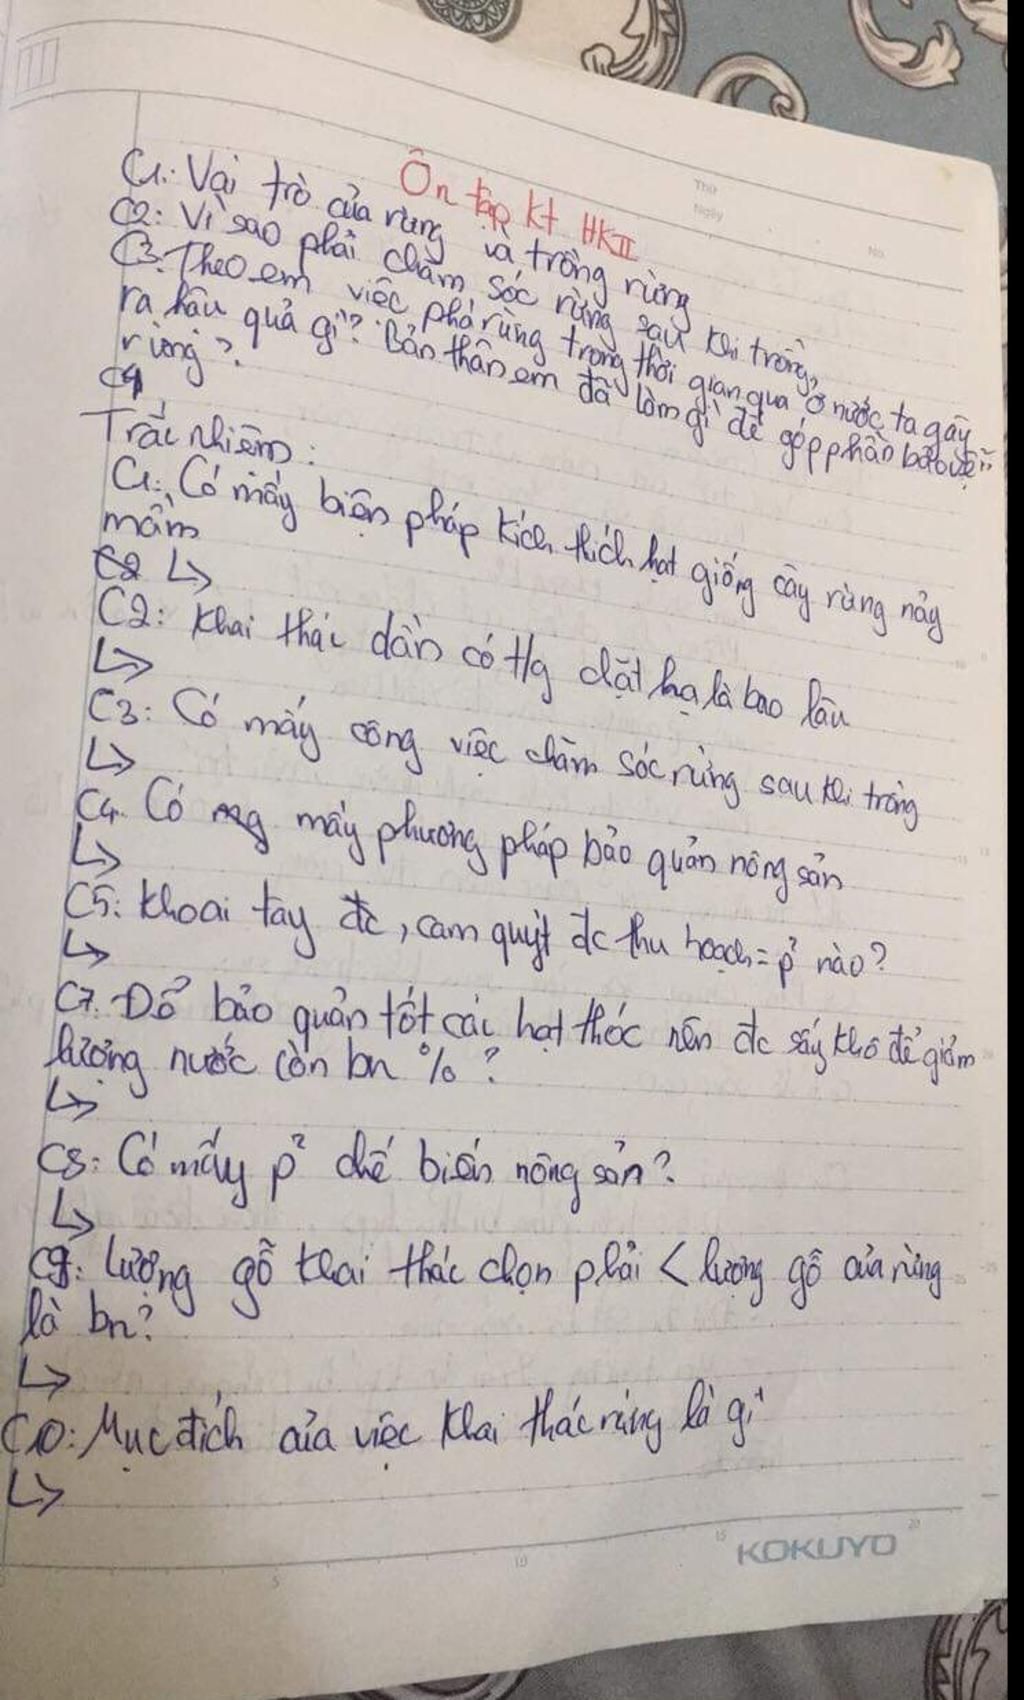 Ôn tập kt HKII
C1: Vai trò của rừng và trồng rừng
C2: Vì sao phải chăm sóc rừng sau khi trồng,
C3: Theo em việc phá rừng trong thời gian qua ở nước ta gây
ra hậu quả gì? Bản thân em đã làm gì để góp phần bảo vệ
rừng?
C4
Trắc nhiệm:
C1: Có mấy biện pháp kích thích hạt giống cây rừng nảy
mầm
C2 ↳
C2: Khai thác dần có t/g chặt hạ là bao lâu
↳
C3: Có mấy công việc chăm sóc rừng sau khi trồng
↳
C4. Có mấy phương pháp bảo quản nông sản
↳
C5: Khoai tây đc, cam quýt đc thu hoạch = p² nào?
↳
C7. Để bảo quản tốt các hạt thóc nên đc sấy khô để giảm
lượng nước còn bn %?
↳
C8: Có mấy p² chế biến nông sản?
↳
C9: Lượng gỗ khai thác chọn phải < lượng gỗ của rừng
là bn?
↳
C10: Mục đích của việc khai thác rừng là gì
↳
Thứ
Ngày
No.
KOKUYO